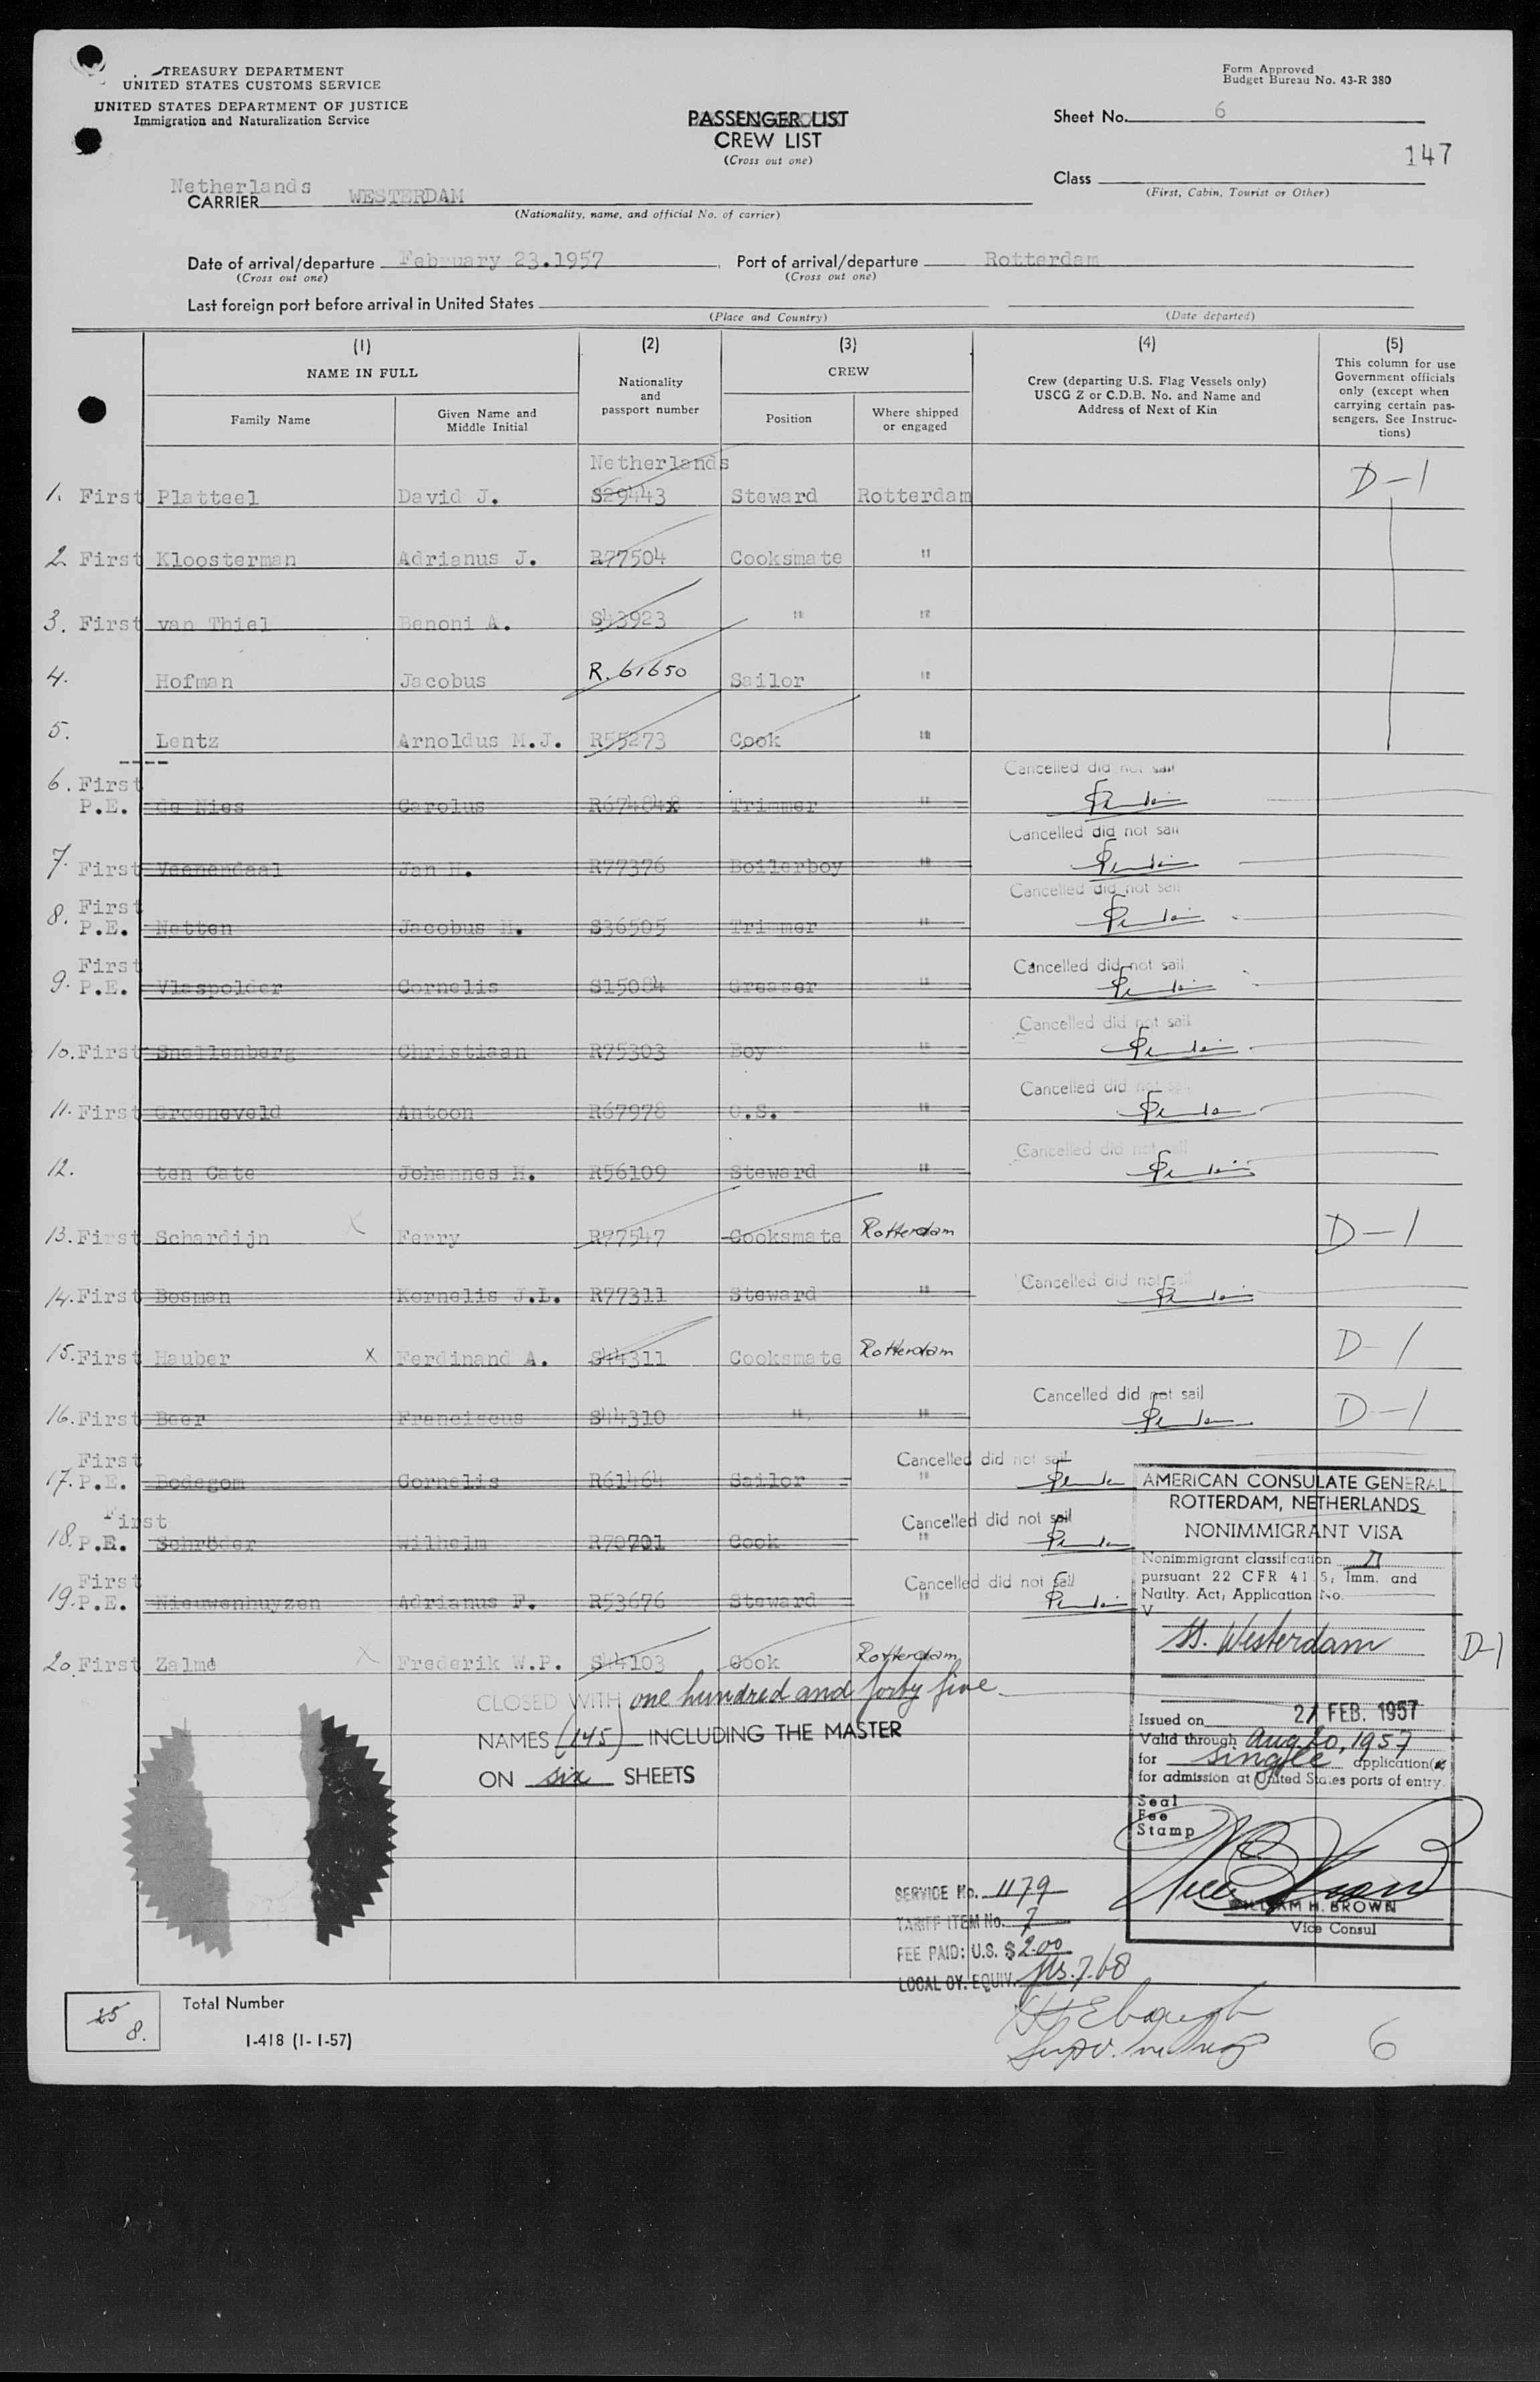 TREASURY DEPARTMENT
UNITED STATES CUSTOMS SERVICE
UNITED STATES DEPARTMENT OF JUSTICE
Immigration and Naturalization Service
Form Approved
Budget Bureau No. 43-R 380
PASSENGER LIST
CREW LIST
(Cross out one)
Sheet No. 6
147
Class
(First, Cabin, Tourist or Other)
Netherlands
CARRIER WESTERDAM
(Nationality, name, and official No. of carrier)
Date of arrival/departure February 23.1957 Port of arrival/departure Rotterdam
(Cross out one) (Cross out one)
Last foreign port before arrival in United States
(Place and Country) (Date departed)
(1) (2) (3) (4) (5)
NAME IN FULL
Family Name
Given Name and
Middle Initial
Nationality
and
passport number
CREW
Position
Where shipped
or engaged
Crew (departing U.S. Flag Vessels only)
USCG Z or C.D.B. No. and Name and
Address of Next of Kin
This column for use
Government officials
only (except when
carrying certain pas-
sengers. See Instruc-
tions)
Netherlands
1. First Platteel David J. S29443 Steward Rotterdam D-1
2. First Kloosterman Adrianus J. R77504 Cooksmate "
3. First van Thiel Benoni A. S43923 " "
4. Hofman Jacobus R. 61650 Sailor "
5. Lentz Arnoldus M.J. R55273 Cook "
----
Cancelled did not sail
6. First
P.E. de Nies Carolus Trimmer "
Cancelled did not sail
7. First Veenendaal Jan H. R77376 Boilerboy "
Cancelled did not sail
8. First
P.E. Netten Jacobus H. S36505 Trimmer "
Cancelled did not sail
9. First
P.E. Vlaspolder Cornelis S15084 Greaser "
Cancelled did not sail
10. First Snellenberg Christiaan R75303 Boy "
Cancelled did not
11. First Groeneveld Antoon R67978 O.S. "
Cancelled did not sail
12. ten Cate Johannes H. R56109 Steward "
13. First Schardijn Ferry R77547 Cooksmate Rotterdam D-1
Cancelled did not sail
14. First Bosman Kornelis J.L. R77311 Steward "
15. First Hauber x Ferdinand A. S44311 Cooksmate Rotterdam D-1
Cancelled did not sail
16. First Beer Franciscus S44310 " " D-1
Cancelled did not sail
17. First
P.E. Bodegom Cornelis R61464 Sailor "
Cancelled did not sail
18. First
P.E. Schröder Wilhelm R70701 Cook "
Cancelled did not sail
19. First
P.E. Nieuwenhuyzen Adrianus F. R53676 Steward "
20. First Zalmé x Frederik W.P. S44103 Cook Rotterdam D-1
CLOSED WITH one hundred and forty five
NAMES (145) INCLUDING THE MASTER
ON six SHEETS
AMERICAN CONSULATE GENERAL
ROTTERDAM, NETHERLANDS
NONIMMIGRANT VISA
Nonimmigrant classification D
pursuant 22 CFR 41.5; Imm. and
Natlty. Act; Application No.
V
SS. Westerdam
Issued on 21 FEB. 1957
Valid through Aug 20, 1957
for single application(s)
for admission at United States ports of entry.
Seal
Fee
Stamp
WILLIAM H. BROWN
Vice Consul
SERVICE No. 1179
TARIFF ITEM No. 7
FEE PAID: U.S. $ 2.00
LOCAL CY. EQUIV. fls. 7.68
25
8.
Total Number
I-418 (1-1-57)
6